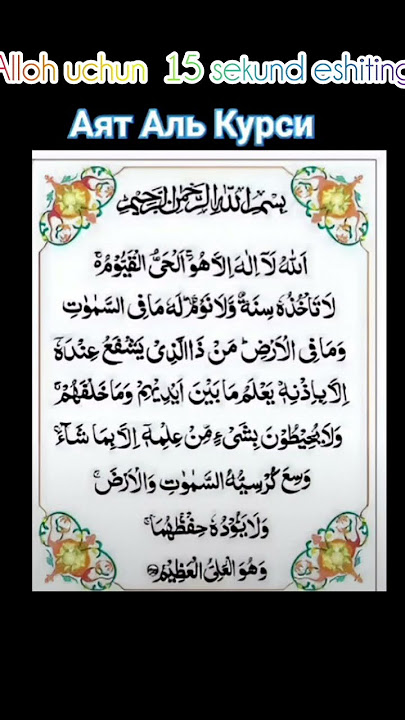 Alloh uchun 15 sekund eshiting
Аят Аль Курси
بِسْمِ اللهِ الرَّحْمٰنِ الرَّحِيْمِ
اَللهُ لَآ اِلٰهَ اِلَّا هُوَ ۚ اَلْحَىُّ الْقَيُّوْمُ ۚ
لَا تَاْخُذُهٗ سِنَةٌ وَّلَا نَوْمٌ ؕ لَهٗ مَا فِى السَّمٰوٰتِ
وَمَا فِى الْاَرْضِ ؕ مَنْ ذَا الَّذِىْ يَشْفَعُ عِنْدَهٗٓ
اِلَّا بِاِذْنِهٖ ؕ يَعْلَمُ مَا بَيْنَ اَيْدِيْهِمْ وَمَا خَلْفَهُمْ ۚ
وَلَا يُحِيْطُوْنَ بِشَىْءٍ مِّنْ عِلْمِهٖٓ اِلَّا بِمَا شَآءَ ۚ
وَسِعَ كُرْسِيُّهُ السَّمٰوٰتِ وَالْاَرْضَ ۚ
وَلَا يَـُٔوْدُهٗ حِفْظُهُمَا ۚ
وَهُوَ الْعَلِىُّ الْعَظِيْمُ